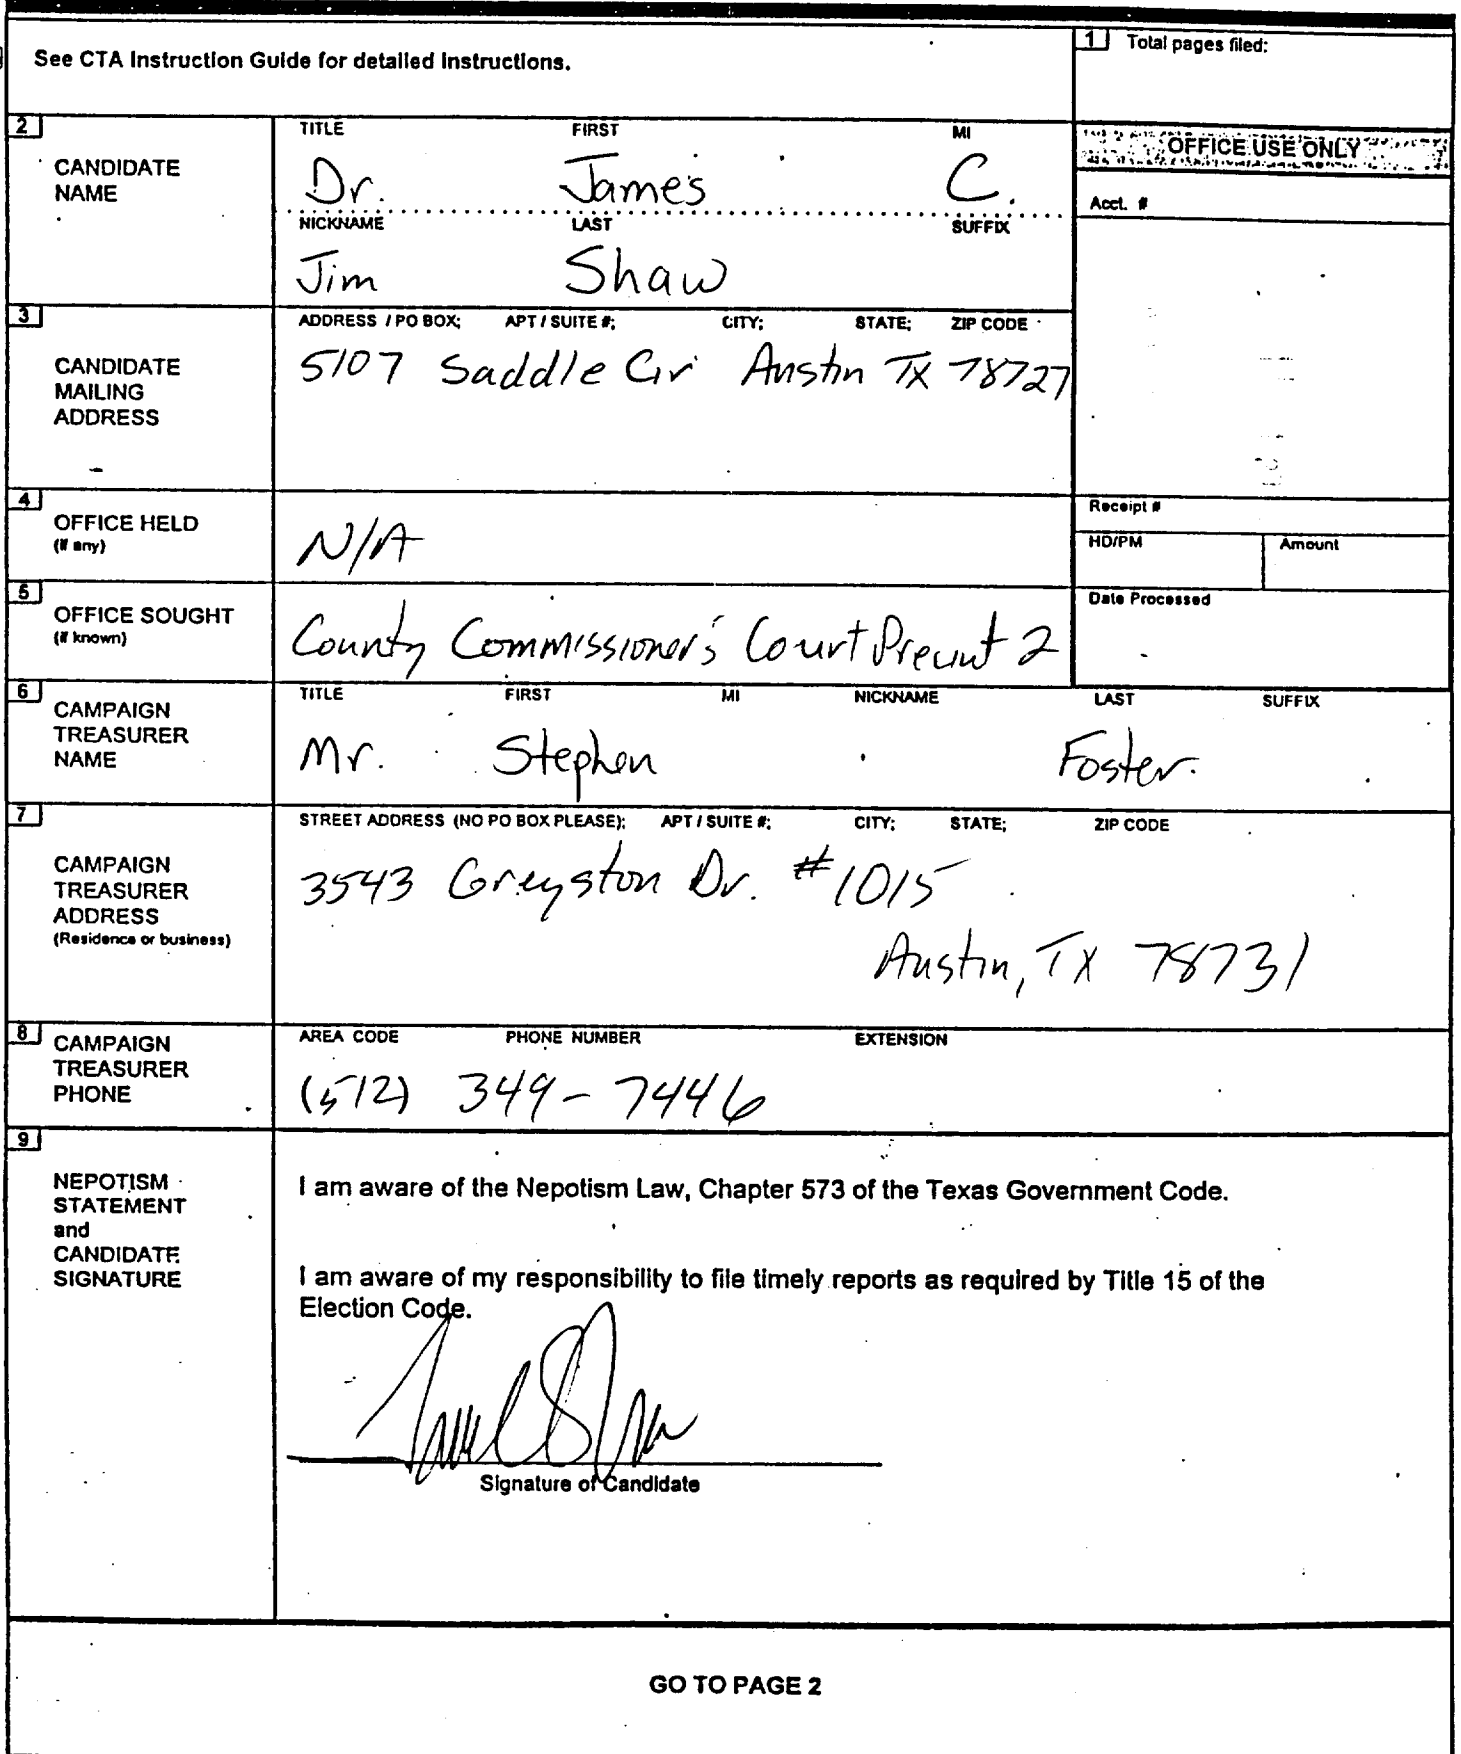 See CTA Instruction Guide for detailed instructions.
1 Total pages filed:
OFFICE USE ONLY
Acct. #
Receipt #
HD/PM Amount
Date Processed
2 CANDIDATE NAME
TITLE FIRST MI
Dr. James C.
NICKNAME LAST SUFFIX
Jim Shaw
3 CANDIDATE MAILING ADDRESS
ADDRESS / PO BOX; APT / SUITE #; CITY; STATE; ZIP CODE
5107 Saddle Cir Austin TX 78727
4 OFFICE HELD (if any)
N/A
5 OFFICE SOUGHT (if known)
County Commissioner's Court Precinct 2
6 CAMPAIGN TREASURER NAME
TITLE FIRST MI NICKNAME LAST SUFFIX
Mr. Stephen Foster.
7 CAMPAIGN TREASURER ADDRESS (Residence or business)
STREET ADDRESS (NO PO BOX PLEASE); APT / SUITE #; CITY; STATE; ZIP CODE
3543 Greyston Dr. #1015
Austin, TX 78731
8 CAMPAIGN TREASURER PHONE
AREA CODE PHONE NUMBER EXTENSION
(512) 349-7446
9 NEPOTISM STATEMENT and CANDIDATE SIGNATURE
I am aware of the Nepotism Law, Chapter 573 of the Texas Government Code.
I am aware of my responsibility to file timely reports as required by Title 15 of the
Election Code.
Signature of Candidate
GO TO PAGE 2